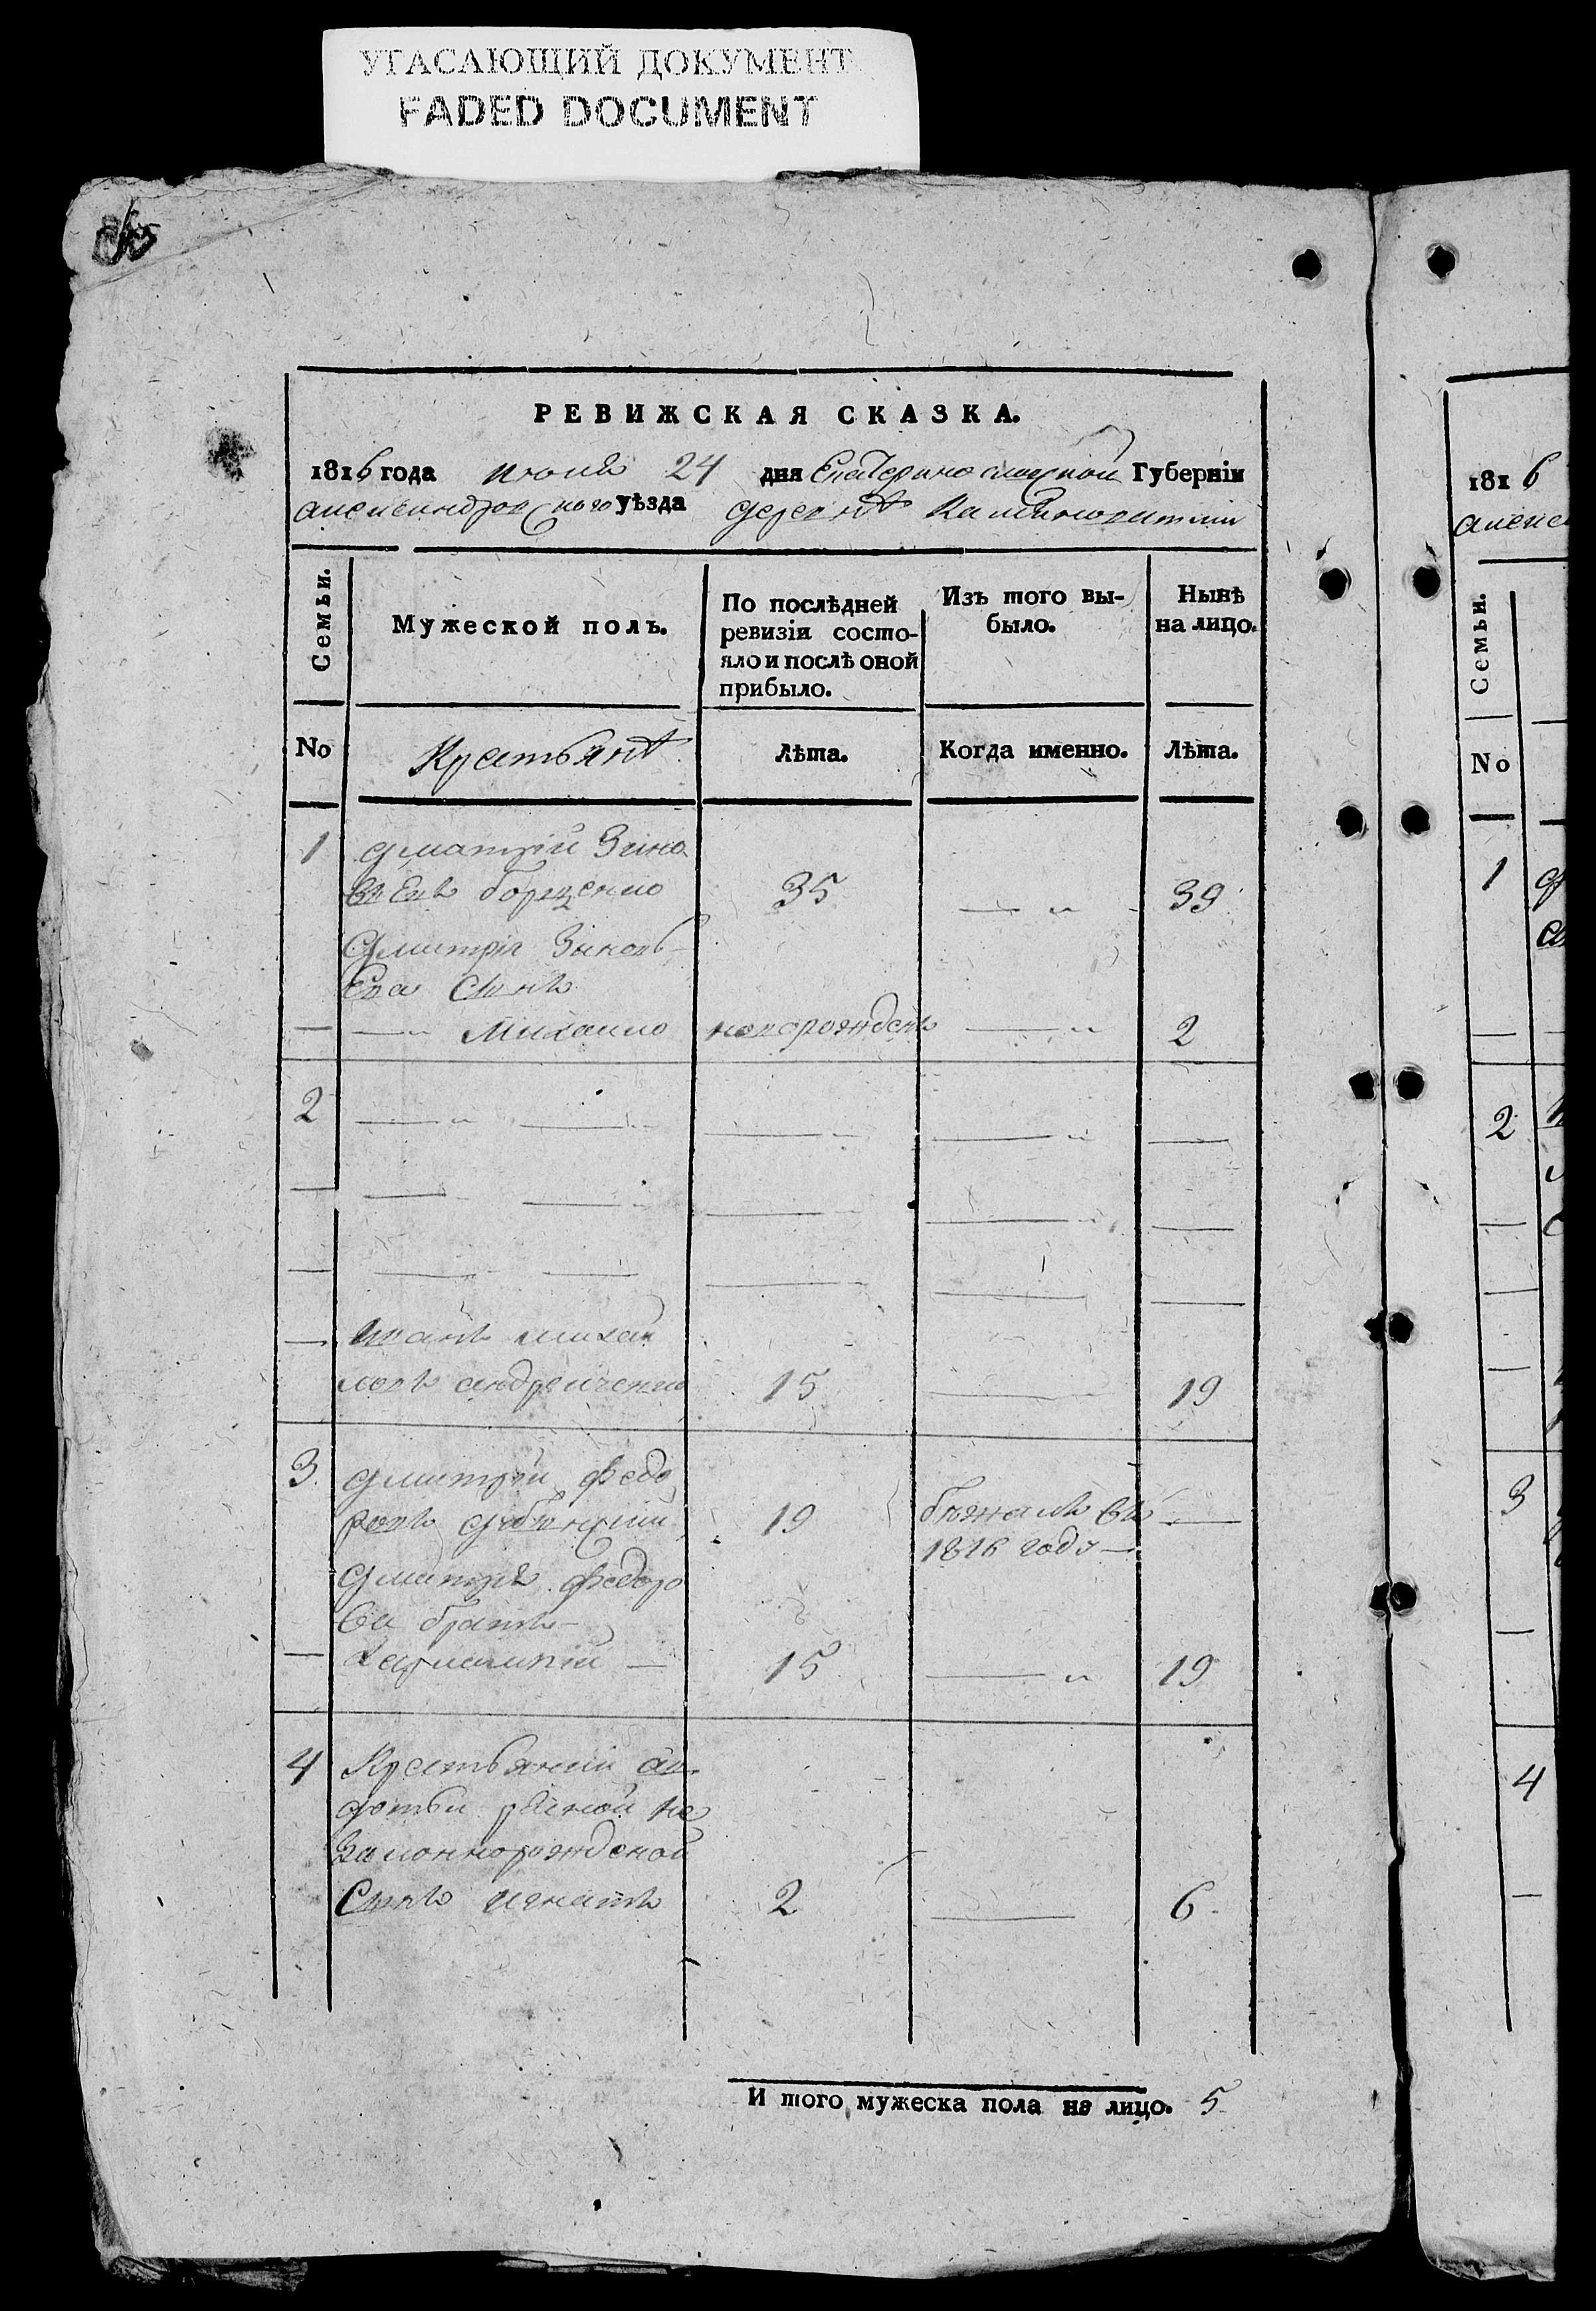 УГАСАЮЩИЙ ДОКУМЕНТ
FADED DOCUMENT
РЕВИЖСКАЯ СКАЗКА.
1816 года июня 24 дня Екатеринославской Губерніи
александровского уѣзда деревнѣ
Семьи.
Мужеской полъ.
По послѣдней ревизіи состо-
яло и послѣ оной
прибыло.
Изъ того вы-
было.
Нынѣ
на лицо.
No
Крестьянѣ
Лѣта.
Когда именно.
Лѣта.
1 Дматрій Зино
въевъ борщенко 35 39
Дмитрія Зиновь-
Ева Сынъ
Михаило новорожденъ 2
2
Иванъ михай
ловъ андрейченко 15 19
3 Дмитрій Федо
ровъ 19 бѣжалъ въ
1816 году
Дмитрія Федоро
ва братъ
Харлампій 15 19
4 Крестьянки ав
дотьи не
законнорожденой
Сынъ игнатъ 2 6
И того мужеска пола на лицо. 5
1816
Семьи.
No
1
2
3
4